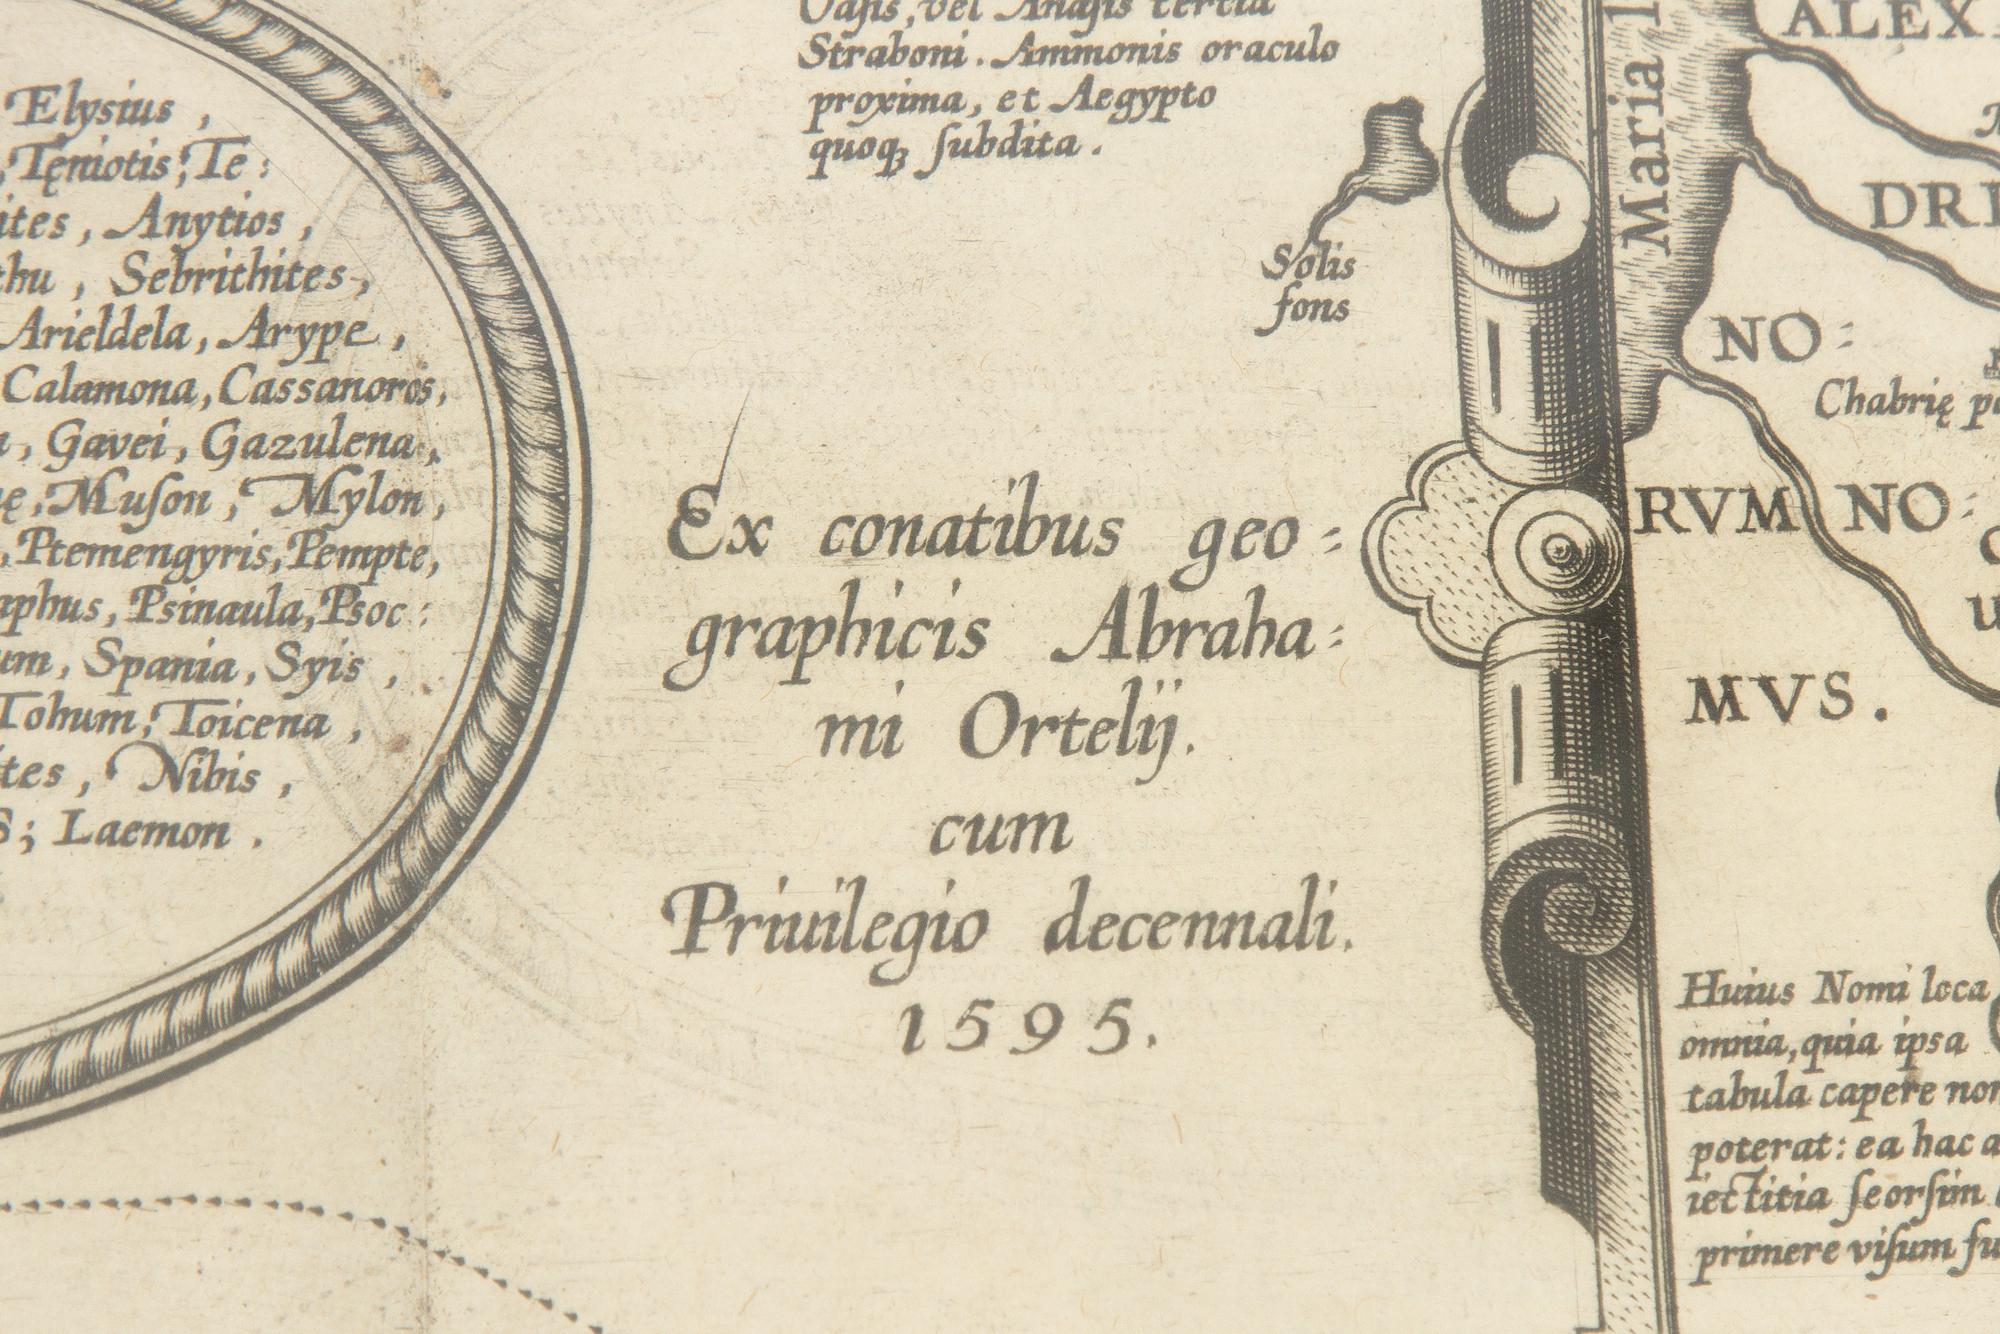 Elysius,
Tęniotis; Te:
ites, Anytios,
thu, Sebrithites,
Arieldela, Arype,
Calamona, Cassanoros,
Gavei, Gazulena,
Muſon, Mylon,
Ptemengyris, Pempte,
aphus, Psinaula, Psoc:
um, Spania, Syis,
Tohum; Toicena,
tes, Nibis,
S; Laemon.
Oasis, vel Anasis tertia
Straboni. Ammonis oraculo
proxima, et Aegypto
quoqꝫ ſubdita.
Solis
fons
Ex conatibus geo=
graphicis Abraha=
mi Ortelij.
cum
Priuilegio decennali.
1595.
Maria
ALEX
DRI
NO=
Chabrię
RVM NO=
MVS.
Huius Nomi loca
omnia, quia ipsa
tabula capere non
poterat: ea hac a
iectitia ſeorſim
primere viſum fu